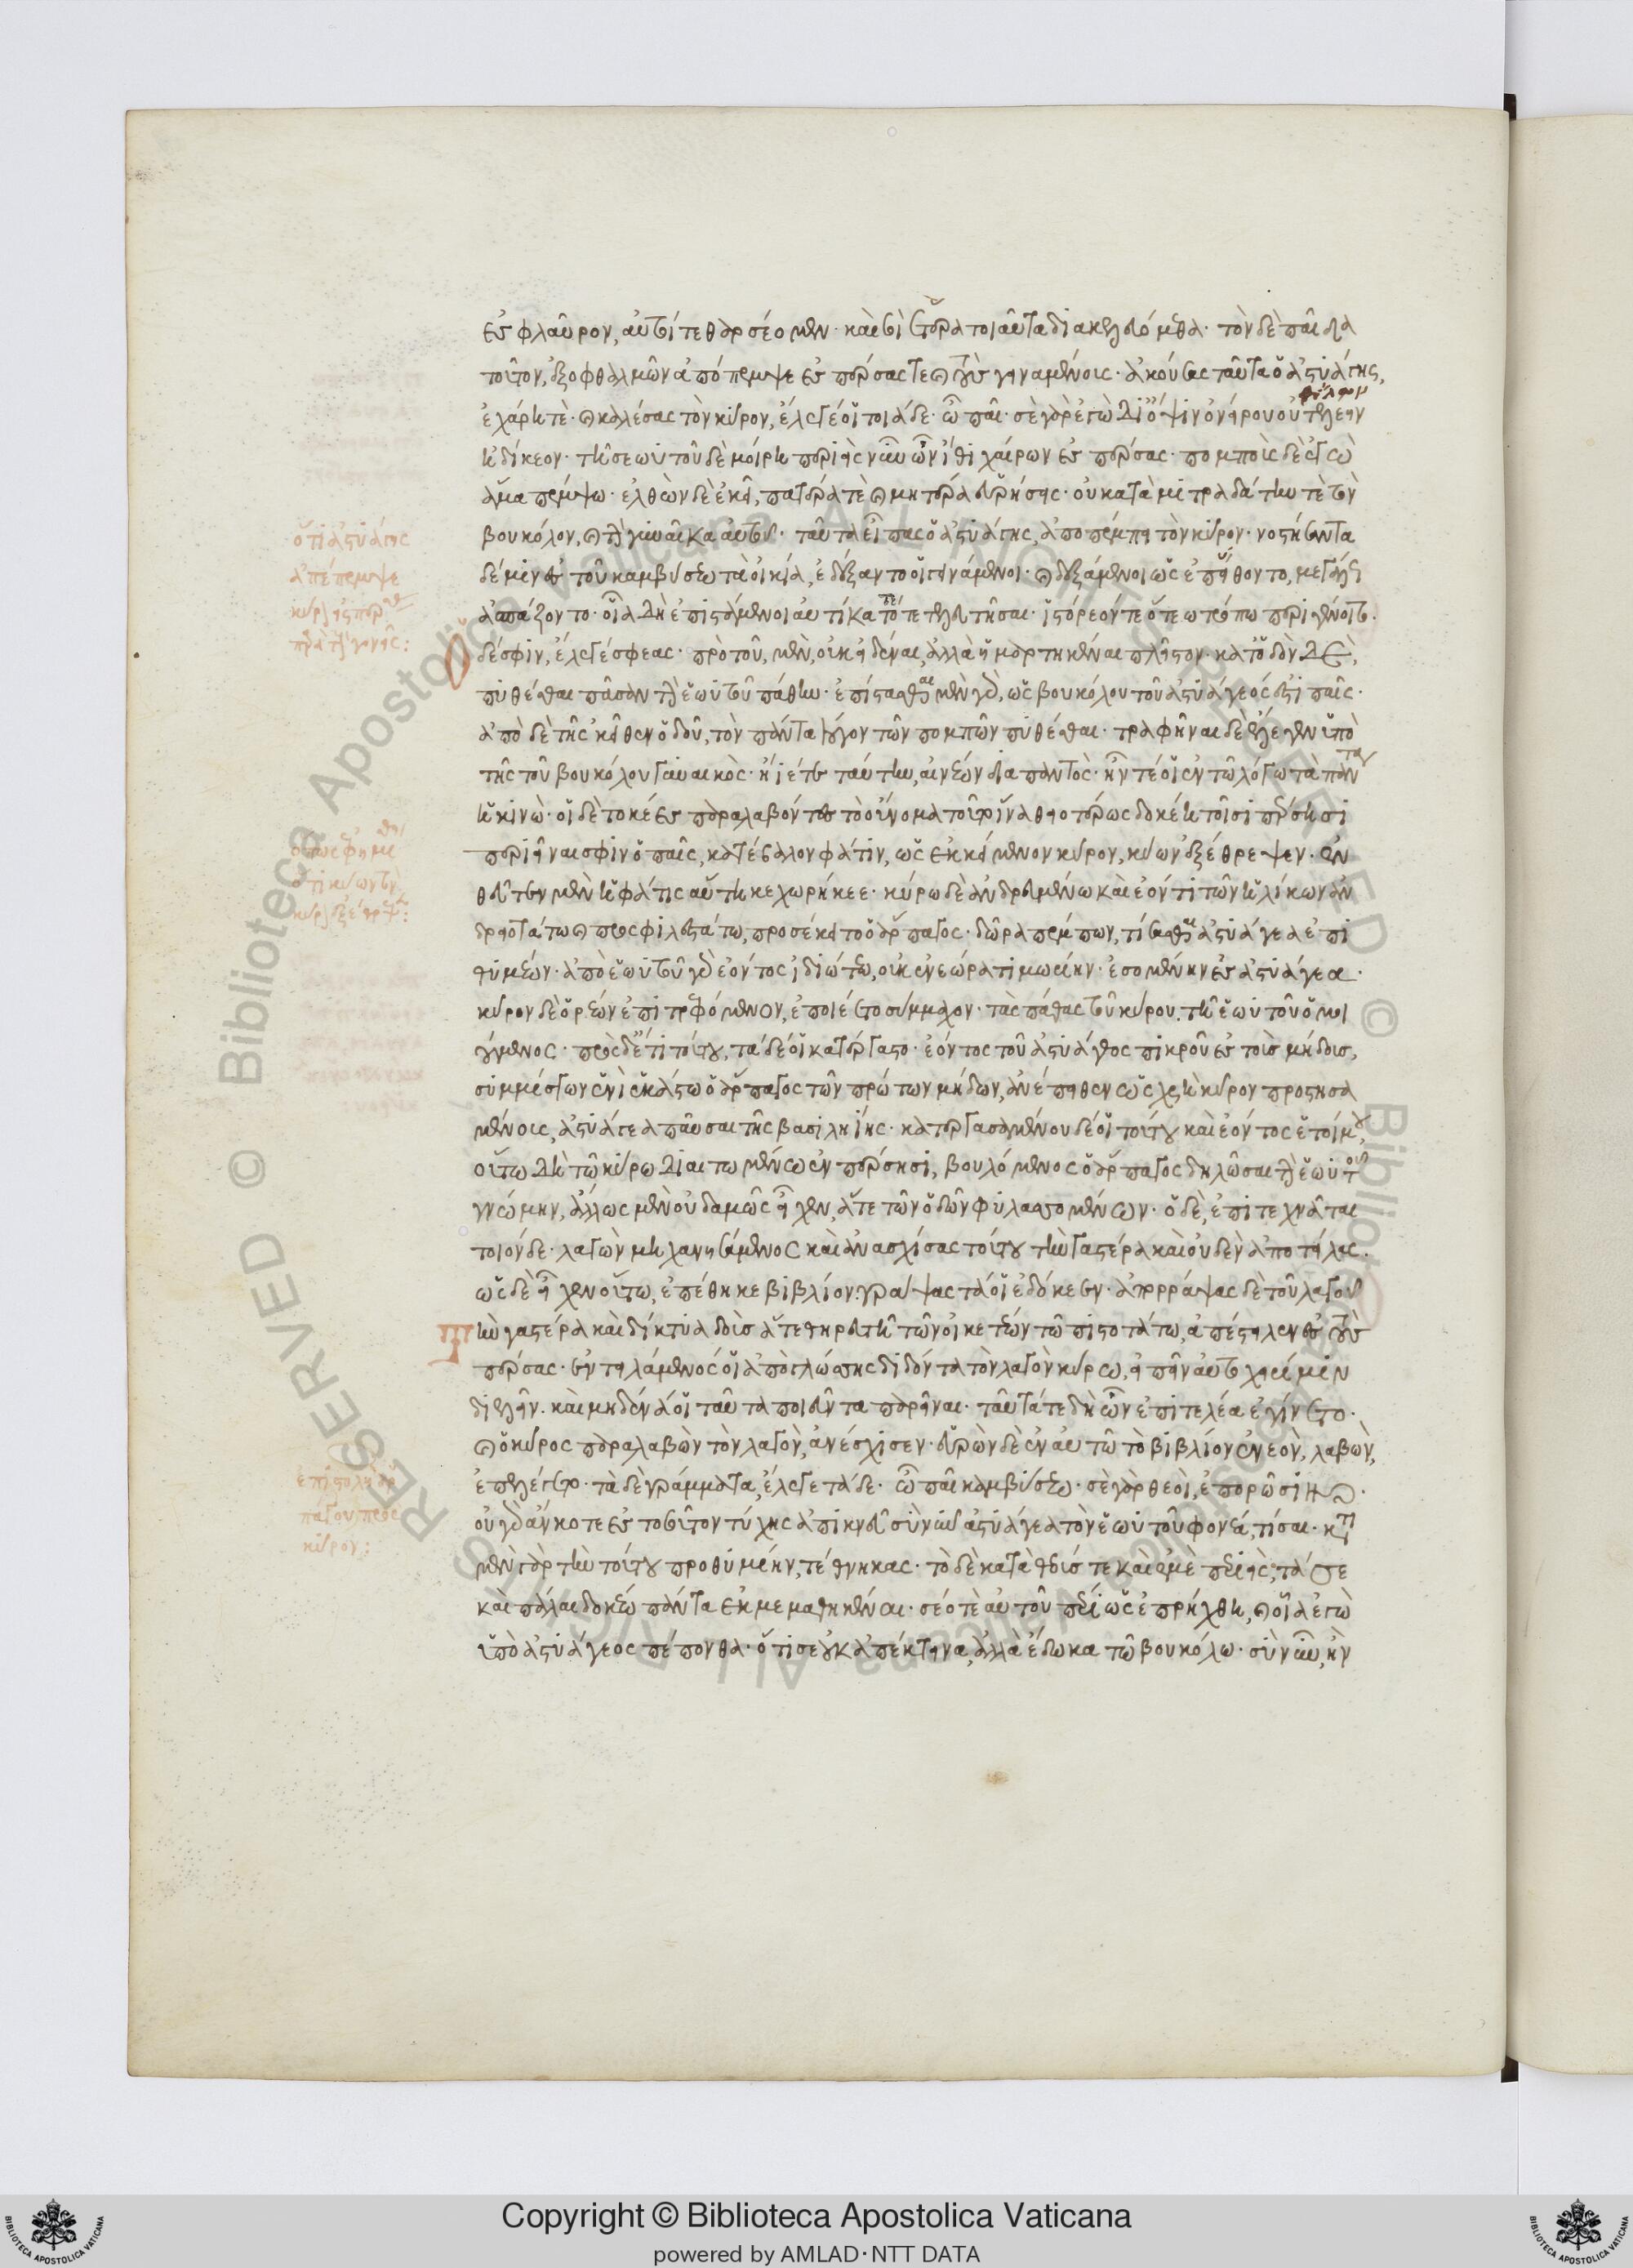 ἐς φλαῦρον, αὐτοί τε θαρσέομεν· καὶ σοὶ ἕτερα τοιαῦτα διακελευόμεθα· τὸν δὲ παῖδα
τοῦτον, ἐξ ὀφθαλμῶν ἀπόπεμψε ἐς πέρσας τε καὶ τοὺς γειναμένους· ἀκούσας ταῦτα ὁ ἀστυάγης,
ἐχάρη τὲ· καὶ καλέσας τὸν κῦρον, ἔλεγέ οἱ τοιάδε· ὦ παῖ· σὲ γὰρ ἐγὼ δι' ὄψιν ὀνείρου οὐ τελέην
ἠδίκεον· τῇ σεωυτοῦ δὲ μοίρῃ περίης νῦν ὦν ἴθι χαίρων ἐς πέρσας· πομποὺς δὲ ἐγὼ
ἅμα πέμψω· ἐλθὼν δὲ ἐκεῖ, πατέρα τὲ καὶ μητέρα εὑρήσεις· οὐ κατὰ μιτραδάτην τὲ τὸν
βουκόλον, καὶ τὴν γυναῖκα αὐτοῦ· ταῦτα εἴπας ὁ ἀστυάγης, ἀποπέμπει τὸν κῦρον· νοστήσαντα
δέ μιν ἐς τοῦ καμβύσεω τὰ οἰκία, ἐδέξαντο οἱ γεινάμενοι· καὶ δεξάμενοι ὡς ἐπύθοντο, μεγάλως
ἀσπάζοντο· οἷα δὴ ἐπιστάμενοι αὐτίκα τότε τελευτῆσαι· ἱστόρεόν τε ὅτεῳ τρόπῳ περιγένοιτο·
δέ σφιν, ἔλεγέ σφεας· πρὸ τοῦ, μὲν, οὐκ εἰδέναι, ἀλλὰ ἡμαρτηκέναι πλεῖστον· κατ' ὁδὸν δὲ,
πυθέσθαι πᾶσαν τὴν ἑωυτοῦ πάθην· ἐπίστασθαι μὲν γὰρ, ὡς βουκόλου τοῦ ἀστυάγεός εἴη παῖς·
ἀπὸ δὲ τῆς κεῖθεν ὁδοῦ, τὸν πάντα λόγον τῶν πομπῶν πυθέσθαι· τραφῆναι δὲ ἔλεγεν ὑπὸ
τῆς τοῦ βουκόλου γυναικός· ἤιέ τε ταύτην, αἰνέων διὰ παντὸς· ἦν τέ οἱ ἐν τῷ λόγῳ τὰ πάντα
ἡ κυνώ· οἱ δὲ τοκέες παραλαβόντες τὸ οὔνομα τοῦτο ἵνα θειοτέρως δοκέῃ τοῖσι πέρσῃσι
περιεῖναί σφιν ὁ παῖς, κατέβαλον φάτιν, ὡς ἐκκείμενον κῦρον, κύων ἐξέθρεψεν· ἐν
θεῦτεν μὲν ἡ φάτις αὕτη κεχωρήκεε· κύρῳ δὲ ἀνδρευμένῳ καὶ ἐόντι τῶν ἡλίκων ἀν
δρηοτάτῳ καὶ προσφιλεστάτῳ, προσέκειτο ὁ ἅρπαγος· δῶρα πέμπων, τίσασθαι ἀστυάγεα ἐπι
θυμέων· ἀπὸ ἑωυτοῦ γὰρ ἐόντος ἰδιώτεω, οὐκ ἐνεώρα τιμωρίην· ἐσομένην ἐς ἀστυάγεα·
κῦρον δὲ ὁρέων ἐπιτρεφόμενον, ἐποιέετο σύμμαχον· τὰς πάθας τοῦ κύρου, τῇ ἑωυτοῦ ὁμοι
ούμενος· πρὸς δ' ἔτι τούτου, τάδε οἱ κατέργαστο· ἐόντος τοῦ ἀστυάγεος πικροῦ ἐς τοὺς μήδους,
συμμίσγων ἑνὶ ἑκάστῳ ὁ ἅρπαγος τῶν πρώτων μήδων, ἀνέπειθεν ὡς χρὴ κῦρον προστησα
μένους, ἀστυάγεα παῦσαι τῆς βασιληίης· κατεργασαμένου δέ οἱ τούτου καὶ ἐόντος ἑτοίμου,
οὕτω δὴ τῷ κύρῳ διαιτωμένῳ ἐν πέρσῃσι, βουλόμενος ὁ ἅρπαγος δηλῶσαι τὴν ἑωυτοῦ
γνώμην, ἄλλως μὲν οὐδαμῶς εἶχεν, ἅτε τῶν ὁδῶν φυλασσομένων· ὁ δὲ, ἐπιτεχνᾶται
τοιόνδε· λαγὼν μηχανησάμενος καὶ ἀνασχίσας τούτου τὴν γαστέρα καὶ οὐδὲν ἀποτίλας·
ὡς δὲ εἶχεν οὕτω, ἐπέθηκε βιβλίον· γράψας τά οἱ ἐδόκεεν· ἀπορράψας δὲ τοῦ λαγοῦ
τὴν γαστέρα καὶ δίκτυα δοὺς ἅτε θηρευτῇ τῶν οἰκετέων τῷ πιστοτάτῳ, ἀπέστειλεν ἐς τοὺς
πέρσας· ἐντειλάμενός οἱ ἀπὸ γλώσσης διδόντα τὸν λαγὸν κύρῳ, εἰπεῖν αὐτοχειρίῃ μιν
διελεῖν· καὶ μηδένα οἱ ταῦτα ποιεῦντα παρεῖναι· ταῦτά τε δὴ ὦν ἐπιτελέα ἐγίνετο·
καὶ ὁ κῦρος παραλαβὼν τὸν λαγὸν, ἀνέσχισεν· εὑρὼν δὲ ἐν αὐτῷ τὸ βιβλίον ἐνεὸν, λαβὼν,
ἐπελέγετο· τὰ δὲ γράμματα, ἔλεγε τάδε· ὦ παῖ καμβύσεω· σὲ γὰρ θεοὶ, ἐπορῶσι
οὐ γὰρ ἄν κοτε ἐς τοσοῦτον τύχης ἀπίκευ σὺ νῦν ἀστυάγεα τὸν ἑωυτοῦ φονέα, τίσαι· κατὰ
μὲν γὰρ τὴν τούτου προθυμίην, τέθνηκας· τὸ δὲ κατὰ θεούς τε καὶ ἐμὲ περίεις· τά σε
καὶ πάλαι δοκέω πάντα ἐκμεμαθηκέναι· σέο τὲ αὐτοῦ πέρι ὡς ἐπρήχθη, καὶ οἷα ἐγὼ
ὑπὸ ἀστυάγεος πέπονθα· ὅτι σε οὐκ ἀπέκτεινα, ἀλλὰ ἔδωκα τῷ βουκόλῳ· σὺ νῦν, ἢν
ὅτι ἀστυάγης
ἀπέπεμψε
ἐπιστολὴ ἁρ
πάγου πρὸς
κῦρον:
RESERVED © Biblioteca Apostolica Vaticana
Copyright © Biblioteca Apostolica Vaticana
powered by AMLAD·NTT DATA